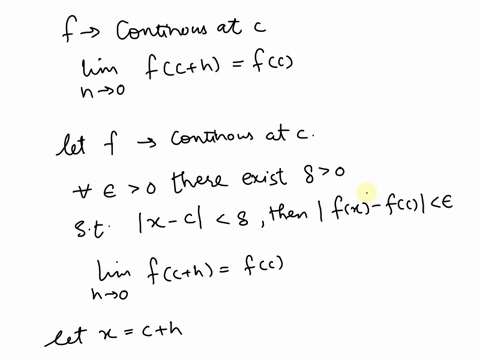 f → Continous at c
lim h→0 f(c+h) = f(c)
let f → Continous at c.
∀ ε > 0 there exist δ > 0
s.t. |x-c| < δ, then |f(x)-f(c)| < ε
lim h→0 f(c+h) = f(c)
let x = c+h